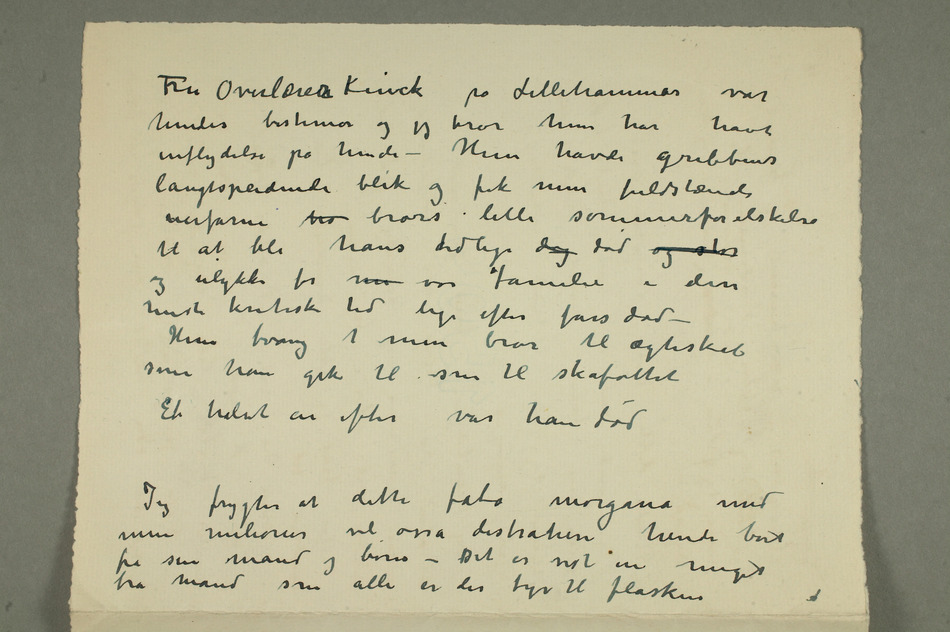 Fru Overlærer Kinck på Lillehammer var
hendes bestemor og jeg tror hun har havt
inflydelse på hende – Hun havde gribbens
langtspeidende blik og fik min fuldstændi
uerfarne bro brors lille sommerforelskelse
til at bli hans tidlige død død og stor
og ulykke for mi vor familie i den
mest kritiske tid lige efter fars død –
Hun tvang min bror til ægteskab
som han gik til som til skafottet
Et halvt år efter var han død
Jeg frygter at dette fata morgana med
mine milioner vil osså distrahere hende bort
fra sin mand og børn – Det er vist en meget
bra mand som alle er der tyr til flasken